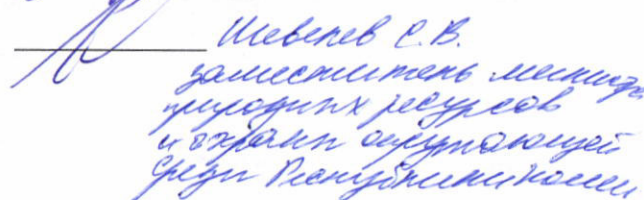 Шевелев С.В.
заместитель министра
природных ресурсов
и охраны окружающей
среды Республики Коми